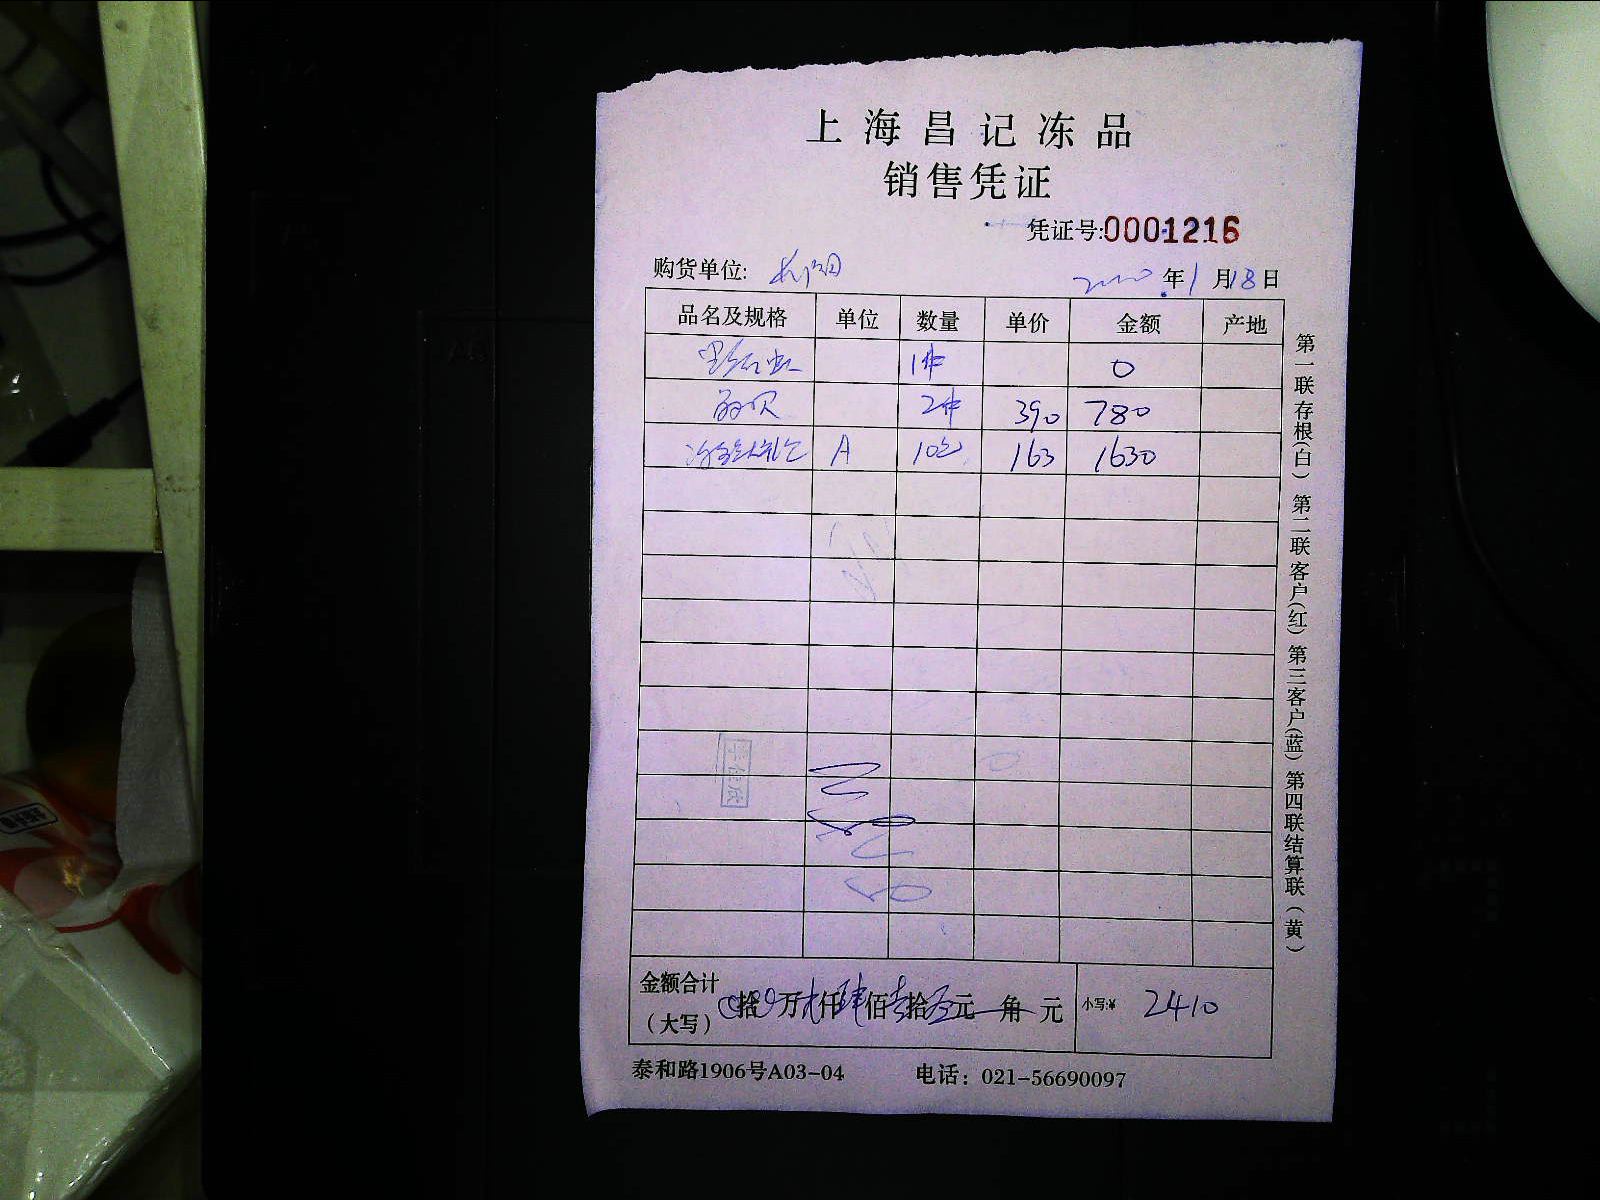 上海昌记冻品
销售凭证
凭证号:0001216
购货单位:
2020年1月18日
品名及规格 单位 数量 单价 金额 产地
1件 0
2件 390 780
A 10包 163 1630
金额合计
(大写) 拾 万 仟 肆 佰 壹 拾 元 角 元 小写:¥ 2410
泰和路1906号A03-04 电话：021-56690097
第一联存根(白) 第二联客户(红) 第三客户(蓝) 第四联结算联(黄)